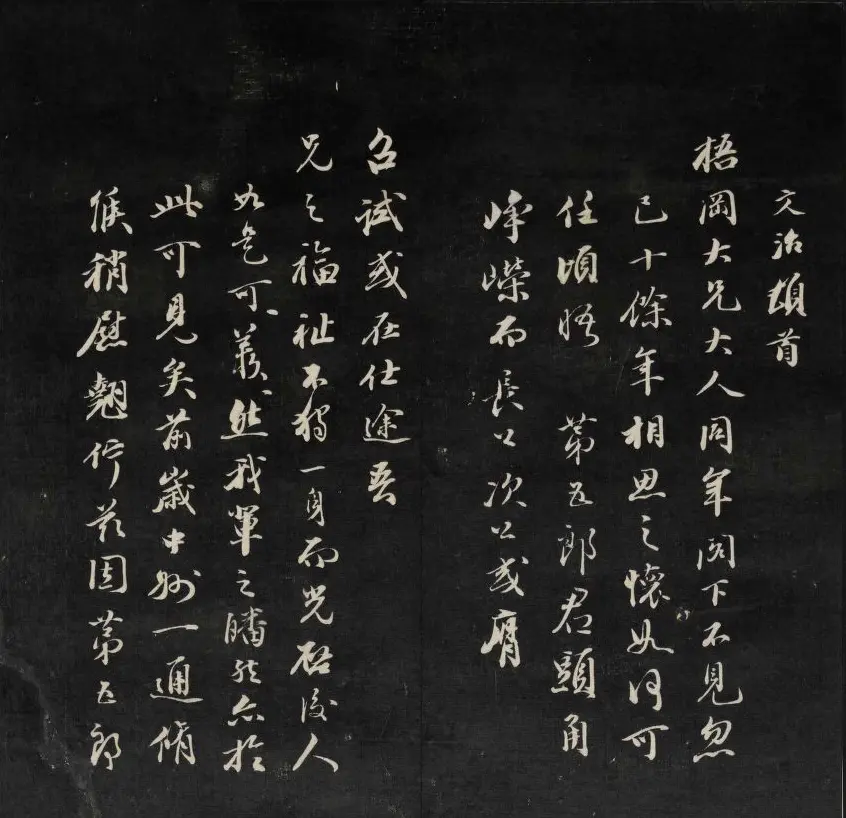 文治頓首
梧岡大兄大人同年閣下不見忽
已十餘年相思之懷如何可
任頃晤 第五郎君頭角
崢嶸而長公次公或膺
召試或在仕途吾
兄之福祉不獨一身而光啓後人
如是可羨然我輩之皤然亦於
此可見矣前歲中州一通脩
候稍慰翹佇茲因第五郎